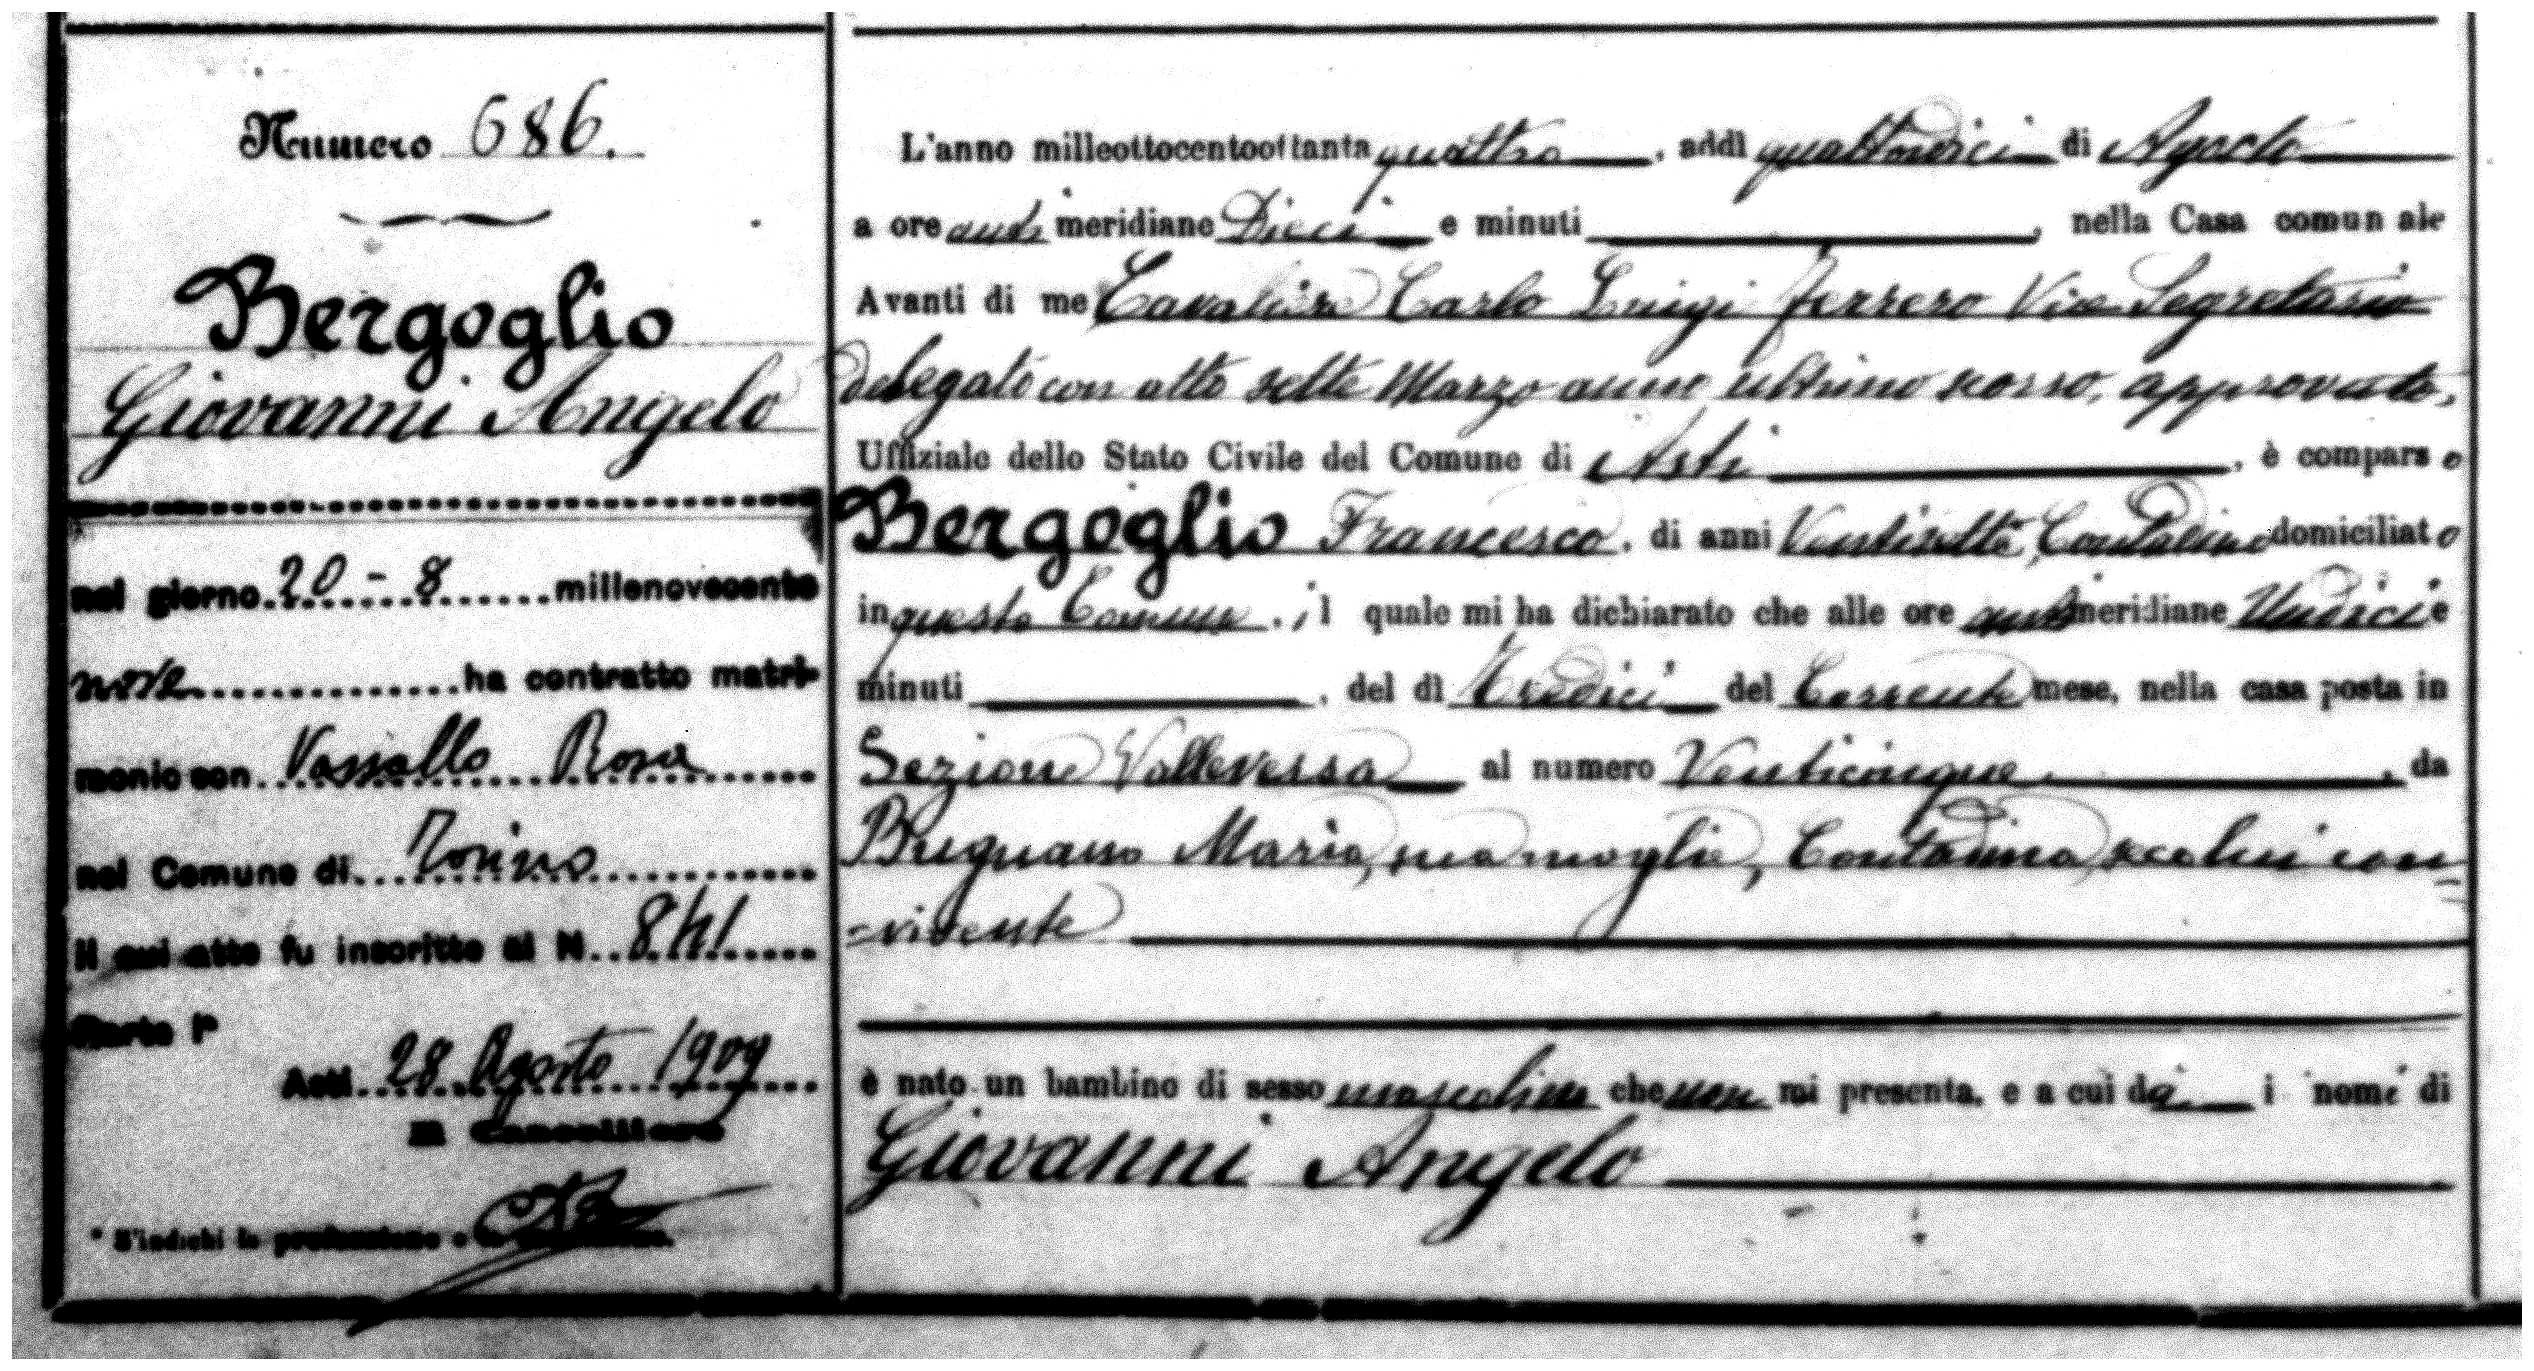 Numero 686.
Bergoglio
Giovanni Angelo
nel giorno 20-8 millenovecento
nove ha contratto matri-
monio con Vassallo Rosa
nel Comune di Torino
il cui atto fu inscritto al N. 841
Parte Iª
Asti 28 Agosto 1909
Il Cancelliere
* S'indichi la professione o la
L'anno milleottocentoottanta quattro, addì quattordici di Agosto
a ore anti meridiane Dieci e minuti , nella Casa comunale
Avanti di me Cavaliere Carlo Luigi Ferrero Vice Segretario
delegato con atto sette Marzo anno ultimo scorso, approvato,
Uffiziale dello Stato Civile del Comune di Asti , è comparso
Bergoglio Francesco, di anni Ventisette, Contadino domiciliato
in questo Comune, il quale mi ha dichiarato che alle ore anti meridiane Undici e
minuti , del dì Tredici del Corrente mese, nella casa posta in
Sezione Valleversa al numero Venticinque, da
Brugnano Maria, sua moglie, Contadina, seco lui con=
=vivente
è nato un bambino di sesso mascolino che non mi presenta, e a cui dà i nomi di
Giovanni Angelo